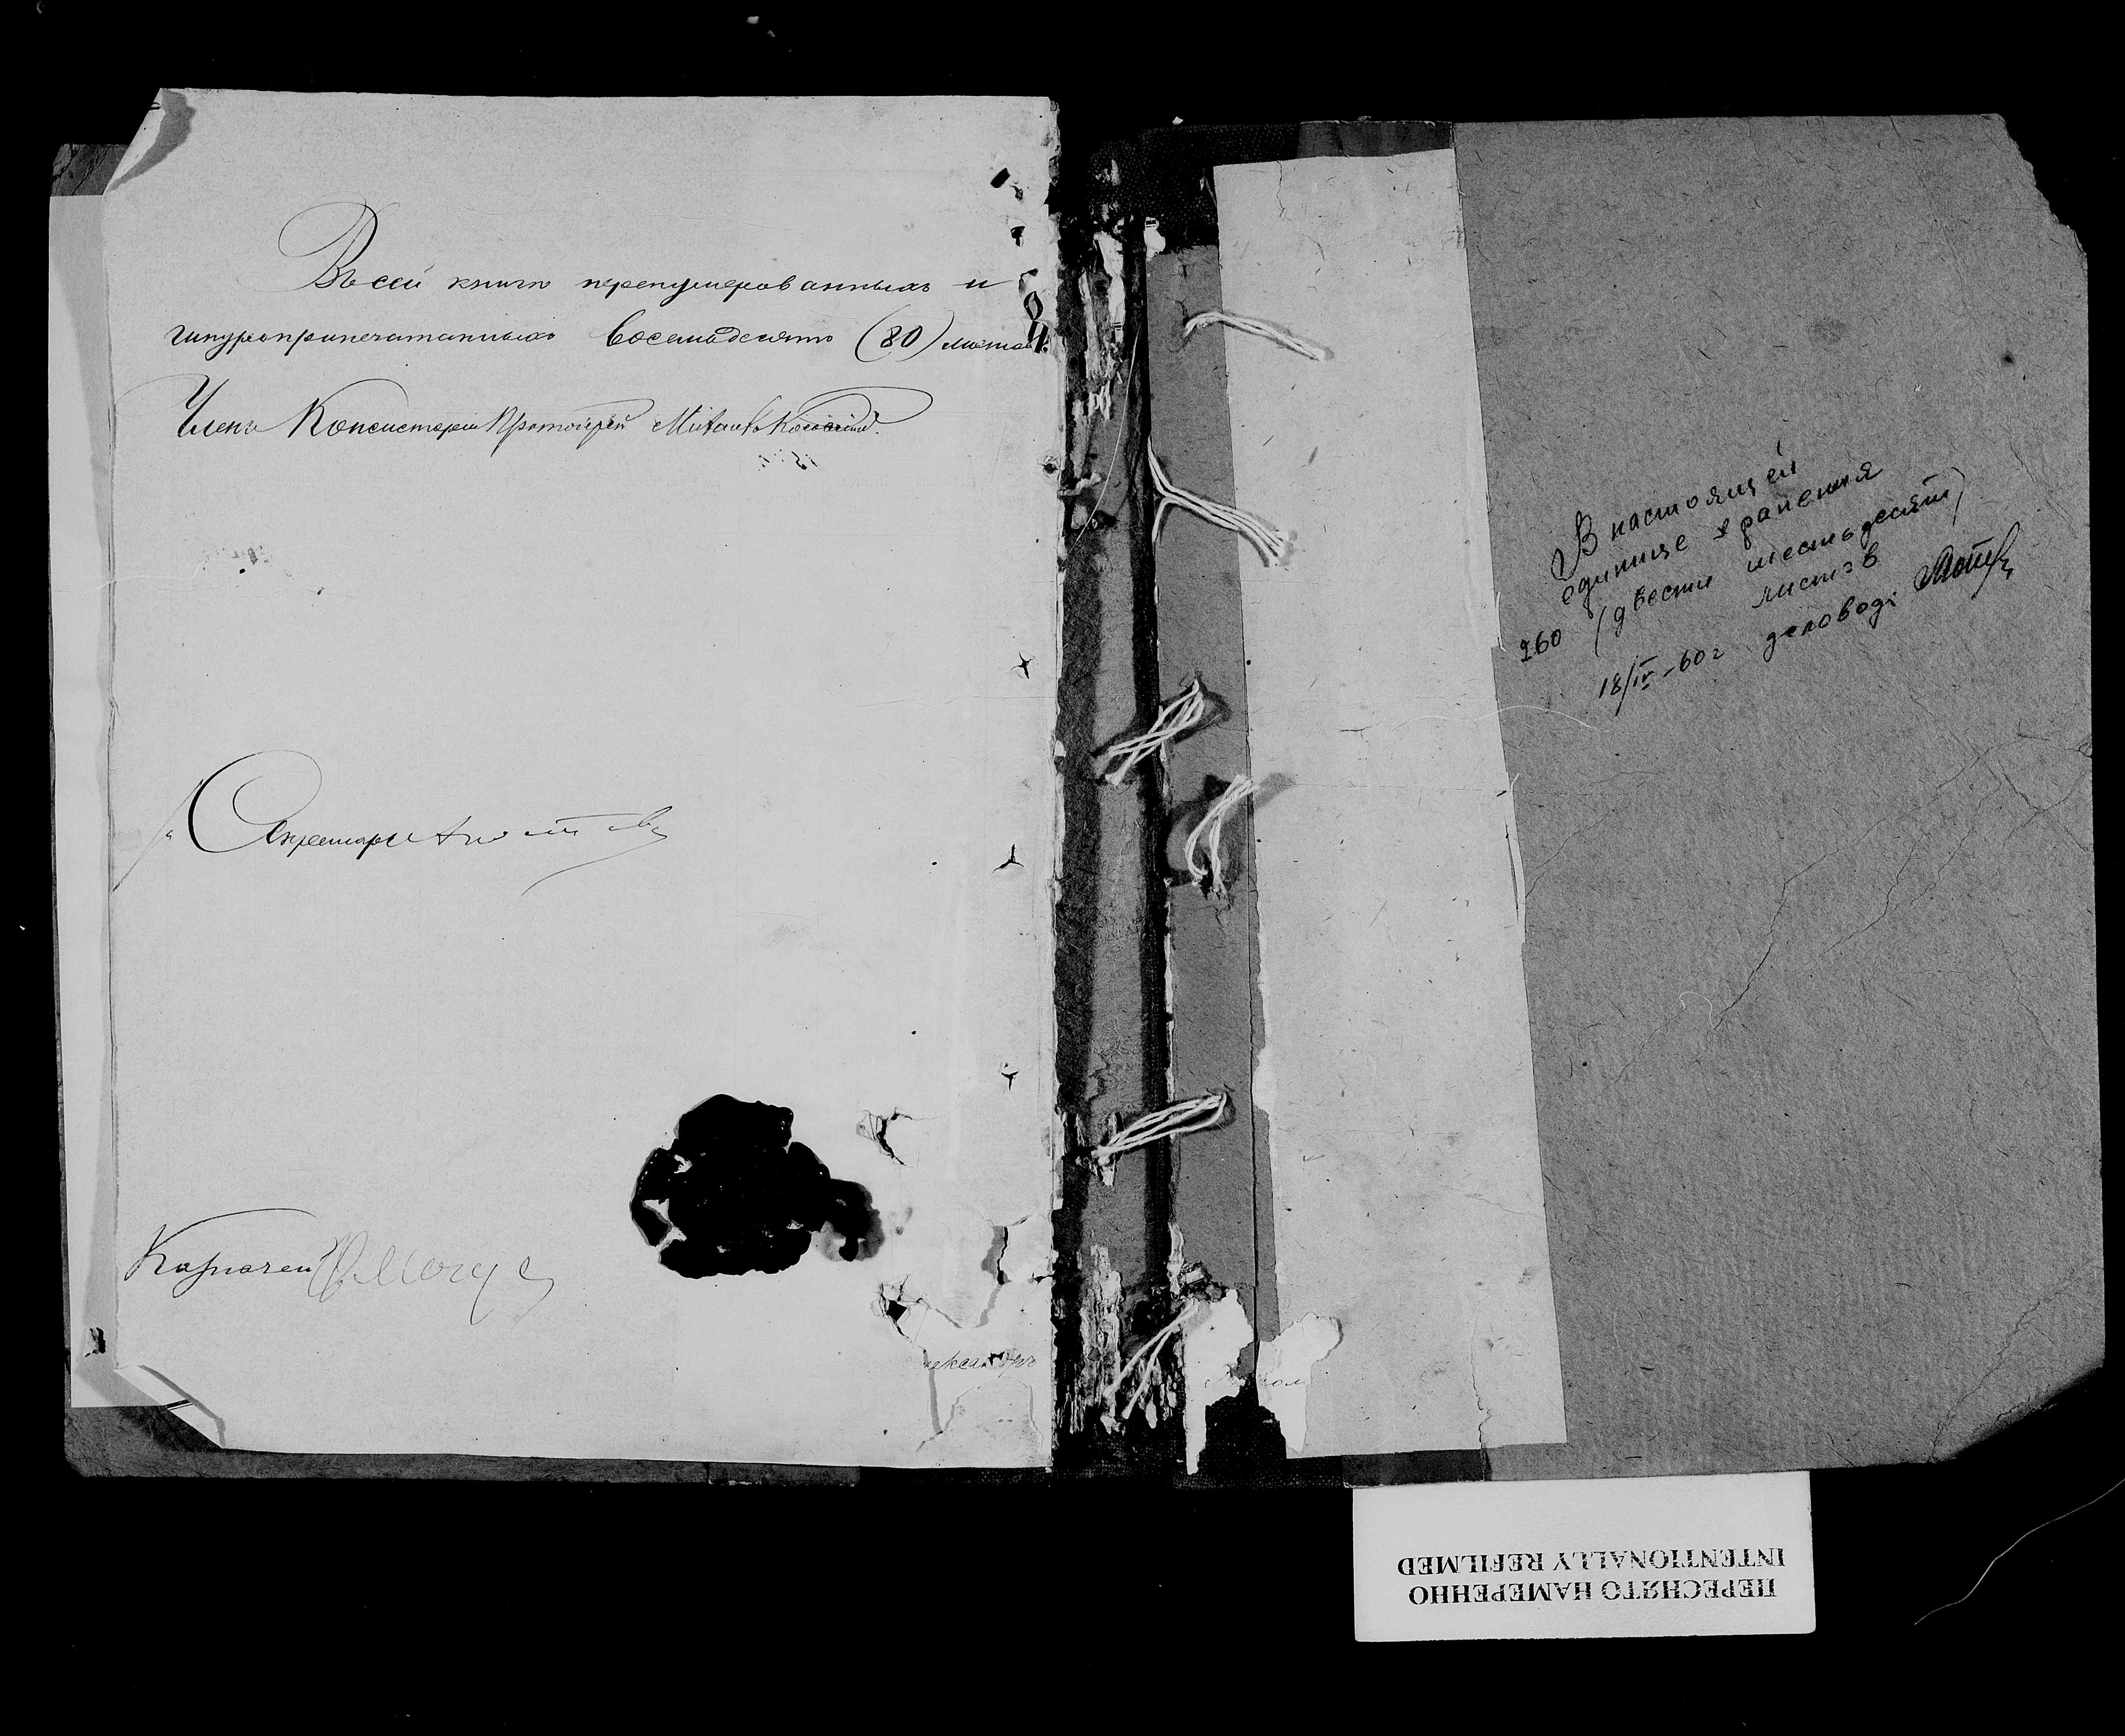 Въ сей книгѣ перенумерованныхъ и
шнуроприпечатанныхъ восемьдесятъ (80) листовъ.
Членъ Консисторіи Протоіерей Михаилъ
Секретарь
Казначей
александр
В настоящей
единице хранения
260 (двести шестьдесят)
листов
18/IV-60г деловод
ПЕРЕСНЯТО НАМЕРЕННО
INTENTIONALLY REFILMED